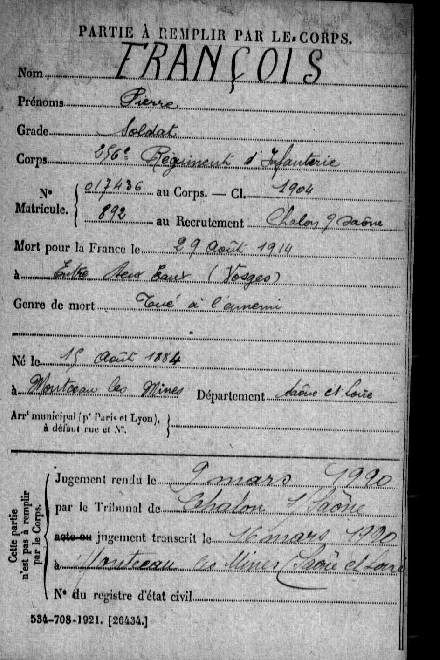 PARTIE À REMPLIR PAR LE CORPS.
Nom FRANÇOIS
Prénoms Pierre
Grade Soldat
Corps 256e Régiment d'Infanterie
N° Matricule. { 017436 au Corps. — Cl. 1904
892 au Recrutement Chalon s/ Saône
Mort pour la France le 29 Août 1914
à Entre Deux Eaux (Vosges)
Genre de mort Tué à l'ennemi
Né le 15 Août 1884
à Montceau les Mines Département Saône et Loire
Arr^t municipal (p^r Paris et Lyon), à défaut rue et N°. }
Cette partie n'est pas à remplir par le Corps.
Jugement rendu le 9 mars 1920
par le Tribunal de Chalon s/ Saône
acte ou jugement transcrit le 16 mars 1920
à Montceau les Mines (Saône et Loire
N° du registre d'état civil
534-708-1921. [26434.]